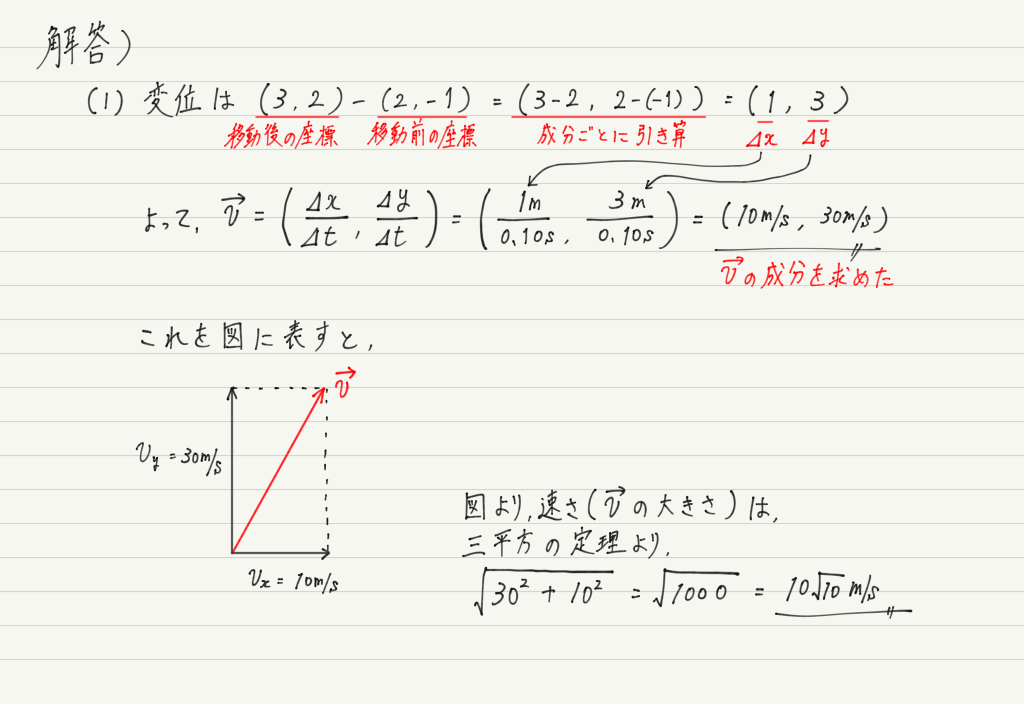 解答)
(1) 変位は (3, 2) - (2, -1) = (3-2, 2-(-1)) = (1, 3)
移動後の座標 移動前の座標 成分ごとに引き算 Δx Δy
よって, v⃗ = (Δx/Δt, Δy/Δt) = (1m/0.10s, 3m/0.10s) = (10m/s, 30m/s)
v⃗の成分を求めた
これを図に表すと,
v⃗
Vy = 30m/s
Vx = 10m/s
図より, 速さ(v⃗の大きさ)は,
三平方の定理より,
√(30² + 10²) = √1000 = 10√10 m/s